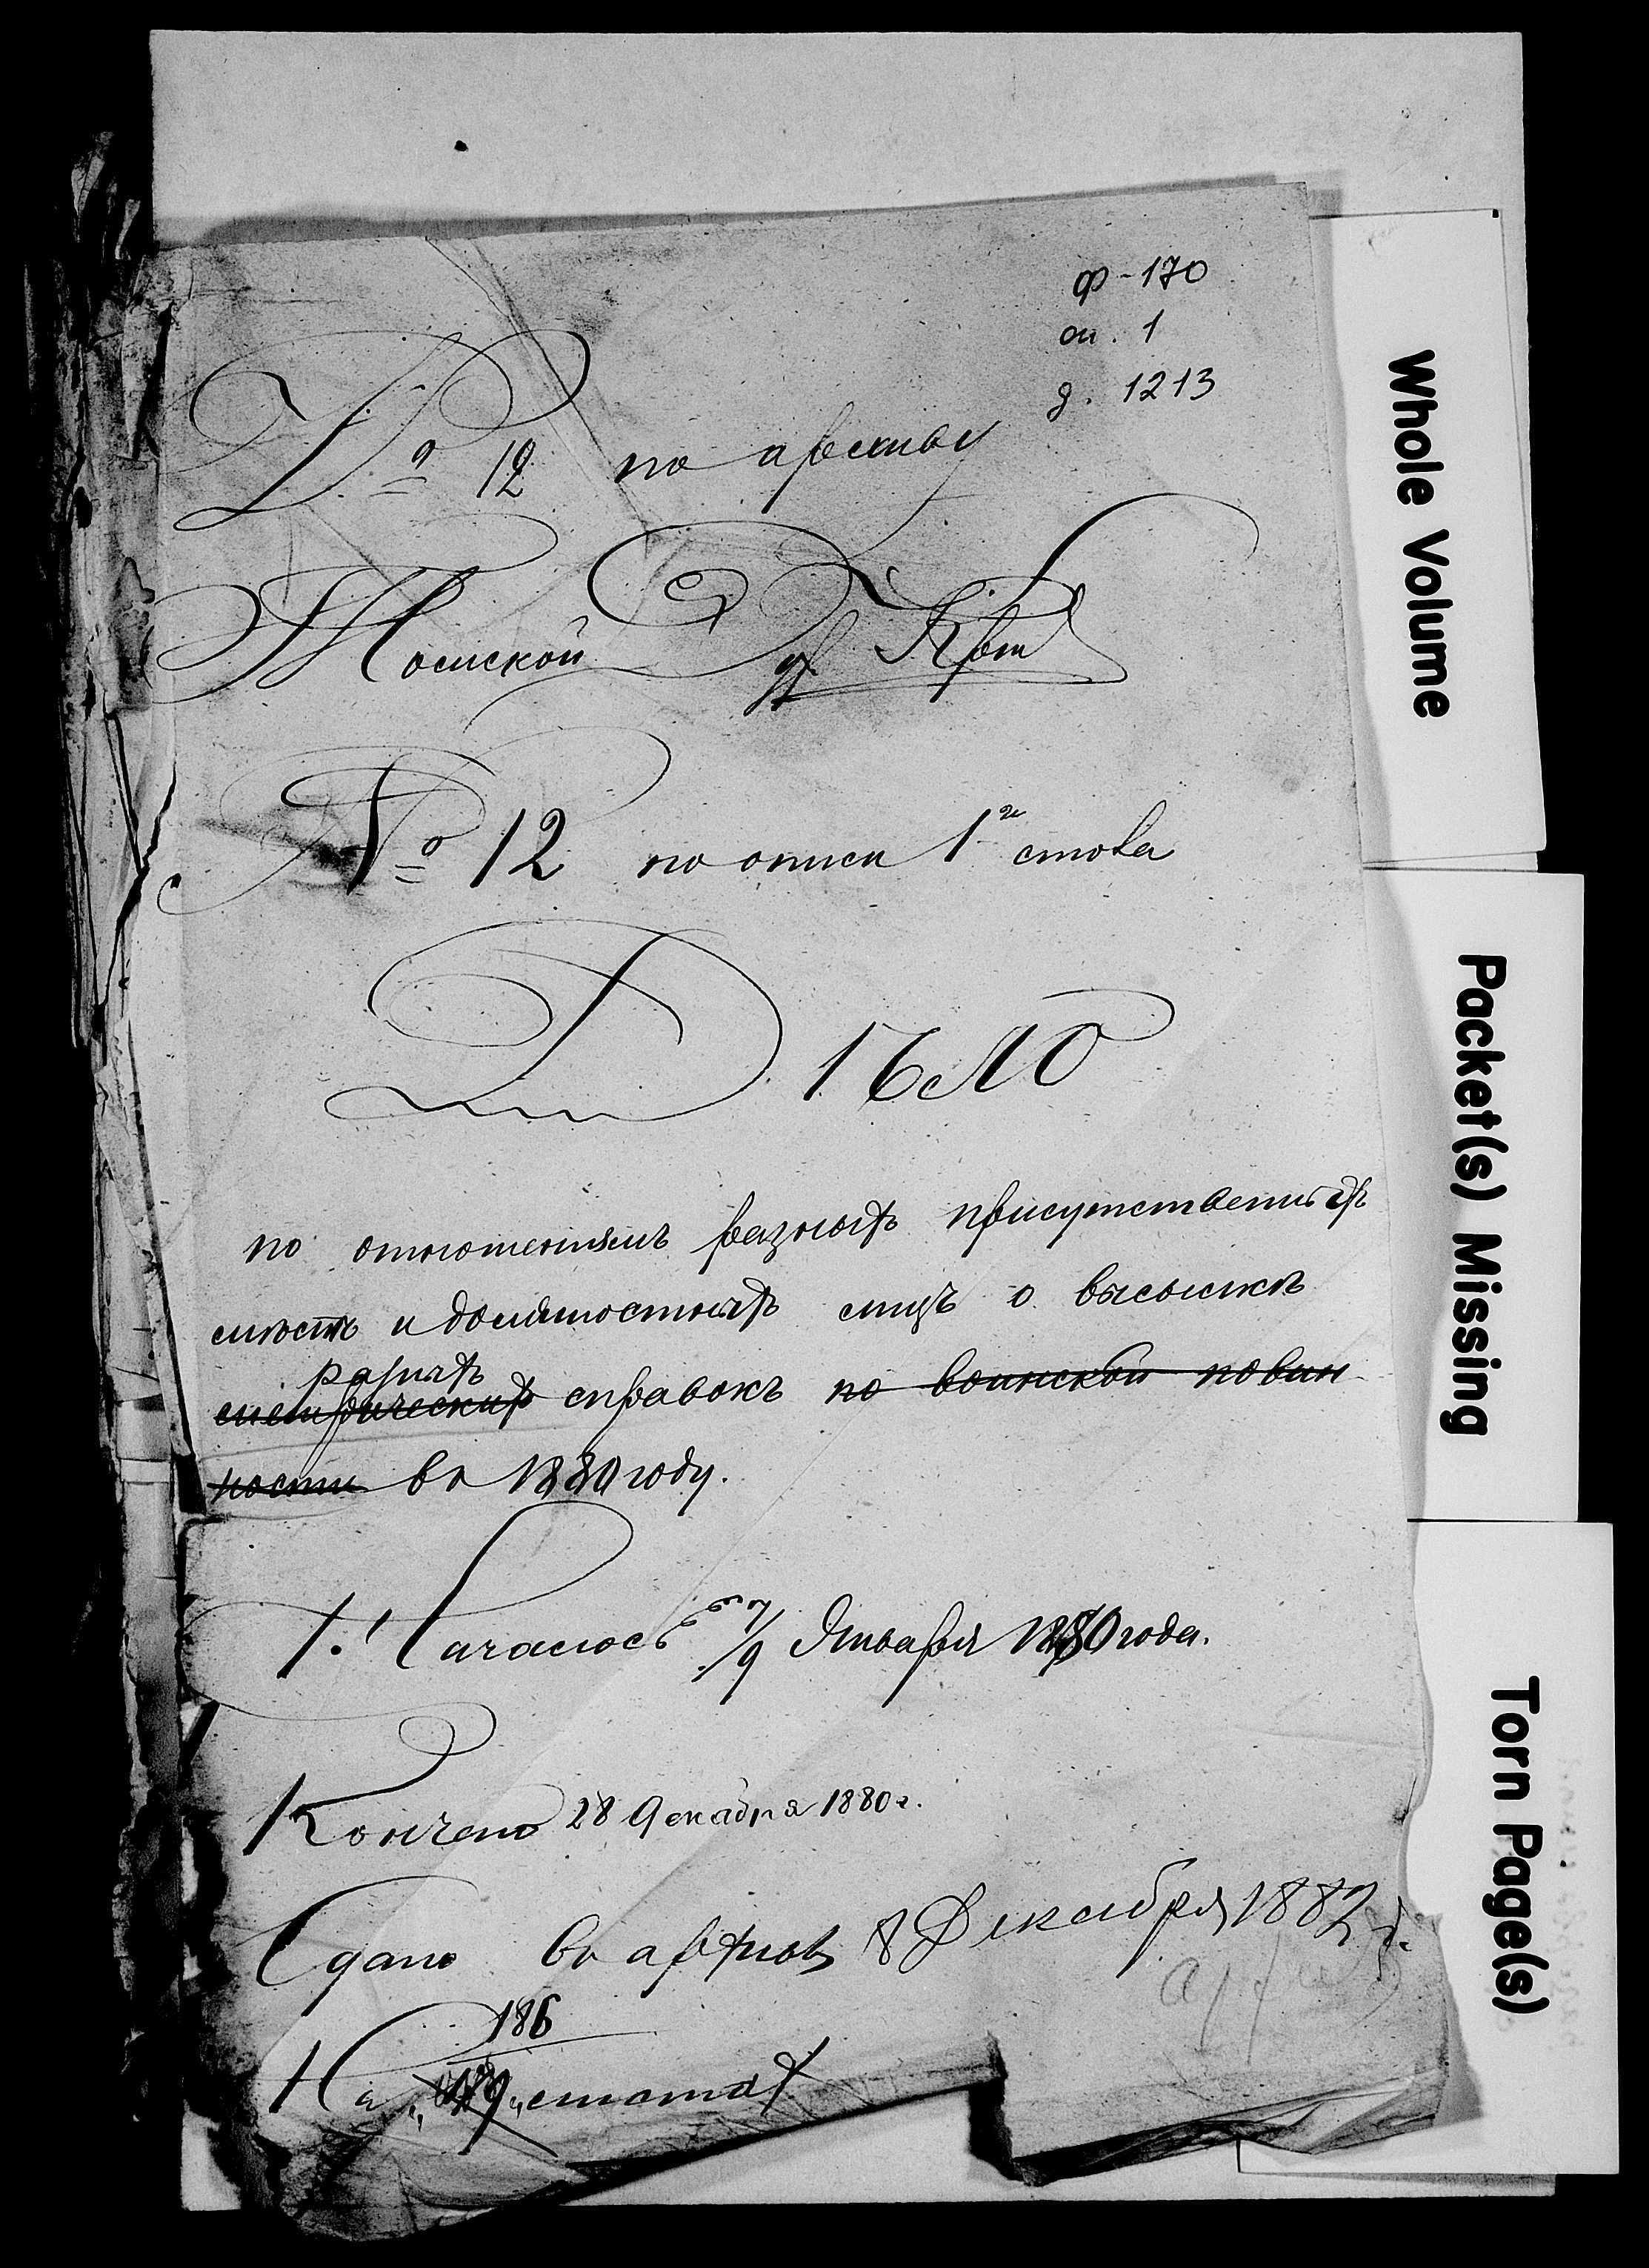 ф-170
оп. 1
д. 1213
№ 12 по архиву
Томской
№ 12 по описи 1го стола
ДѢЛО
по отношеніямъ разныхъ присутственныхъ
мѣстъ и должностныхъ лицъ о высылкѣ
разныхъ
метрическихъ справокъ по воинской повин
ности въ 1880 году.
Началось 7/9 Января 1880 года.
Кончено 28 Декабря 1880 г.
Сдано въ архивъ 8 Декабря 1882 г.
186
На листахъ
Whole Volume
Packet(s) Missing
Torn Page(s)